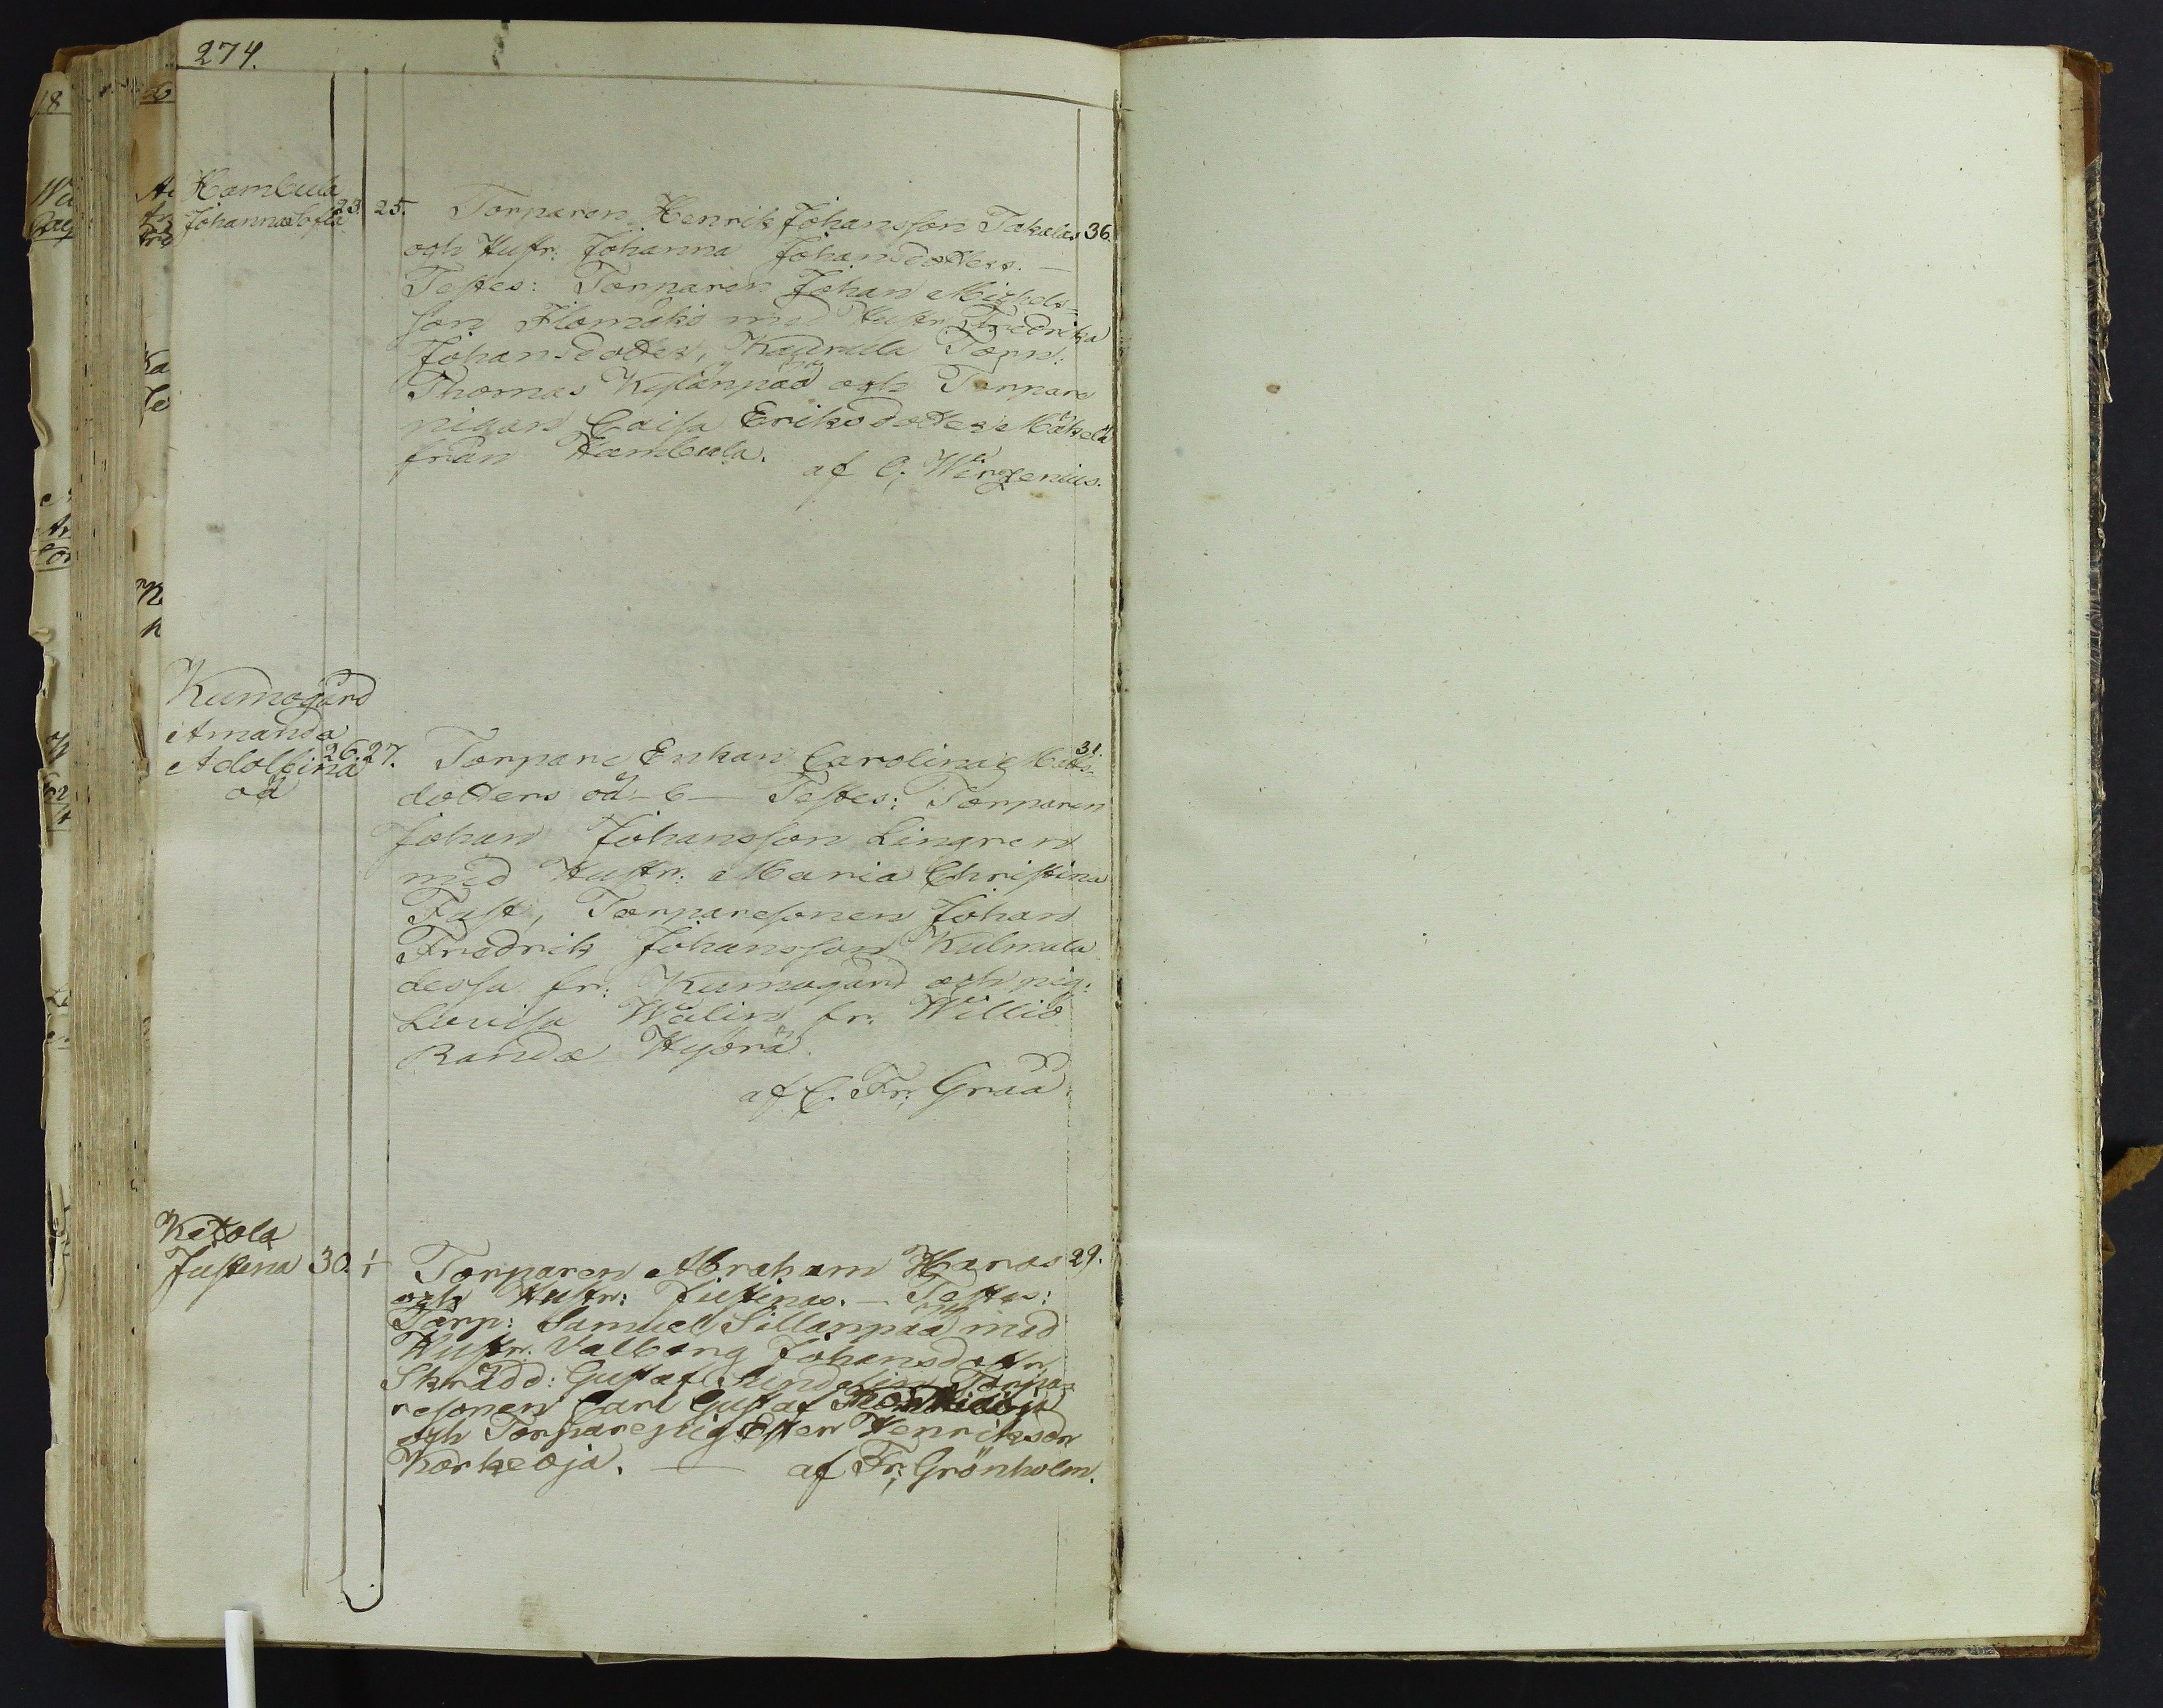 274.
Hambula
Johanna Sofia 23. 25. Torparen Henrik Johansson Takalas 36.
och Hustr: Johanna Johansdotters. —
Testes: Torparen Johan Michels-
son Ilomäki med Hustr. Fredrika
Johansdotter, Torp:
Thomas Kesänpää och Torpare
pigan Caisa Eriksdotter Mäkelä
från Hambula.
af C. Wirzenius.
Kumogård
Amanda
Adolfina 26. 27. Torpare Enkan Carolina Matts- 31.
oä
dotters oä – b — Testes: Torparen
Johan Johansson Lingren
med Hustr. Maria Christina
Fast, Torparesonen Johan
Fredrik Johansson Kulmala
dessa fr: Kumogård och pig:
Lovisa Wälin fr. Willio
Randa Hyörä.
af C. Fr: Graä.
Ketola
Justina 30. 1 Torparen Abraham Hanas 29.
och Hustr: Justinas. — Testes:
Torp: Samuel Sillanpää med
Hustr. Valborg Johansdottr
Skrädd: Gustaf Lindelin Torpa-
resonen Carl Gustaf
och Torparepig Ester Henriksdr
Korkeoja. — af Fr: Grönholm.